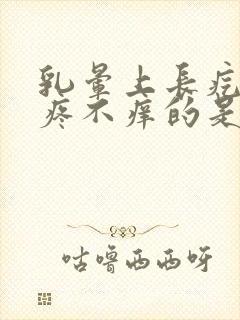 乳暈上長疙
疼不癢的是
咕噜西西呀